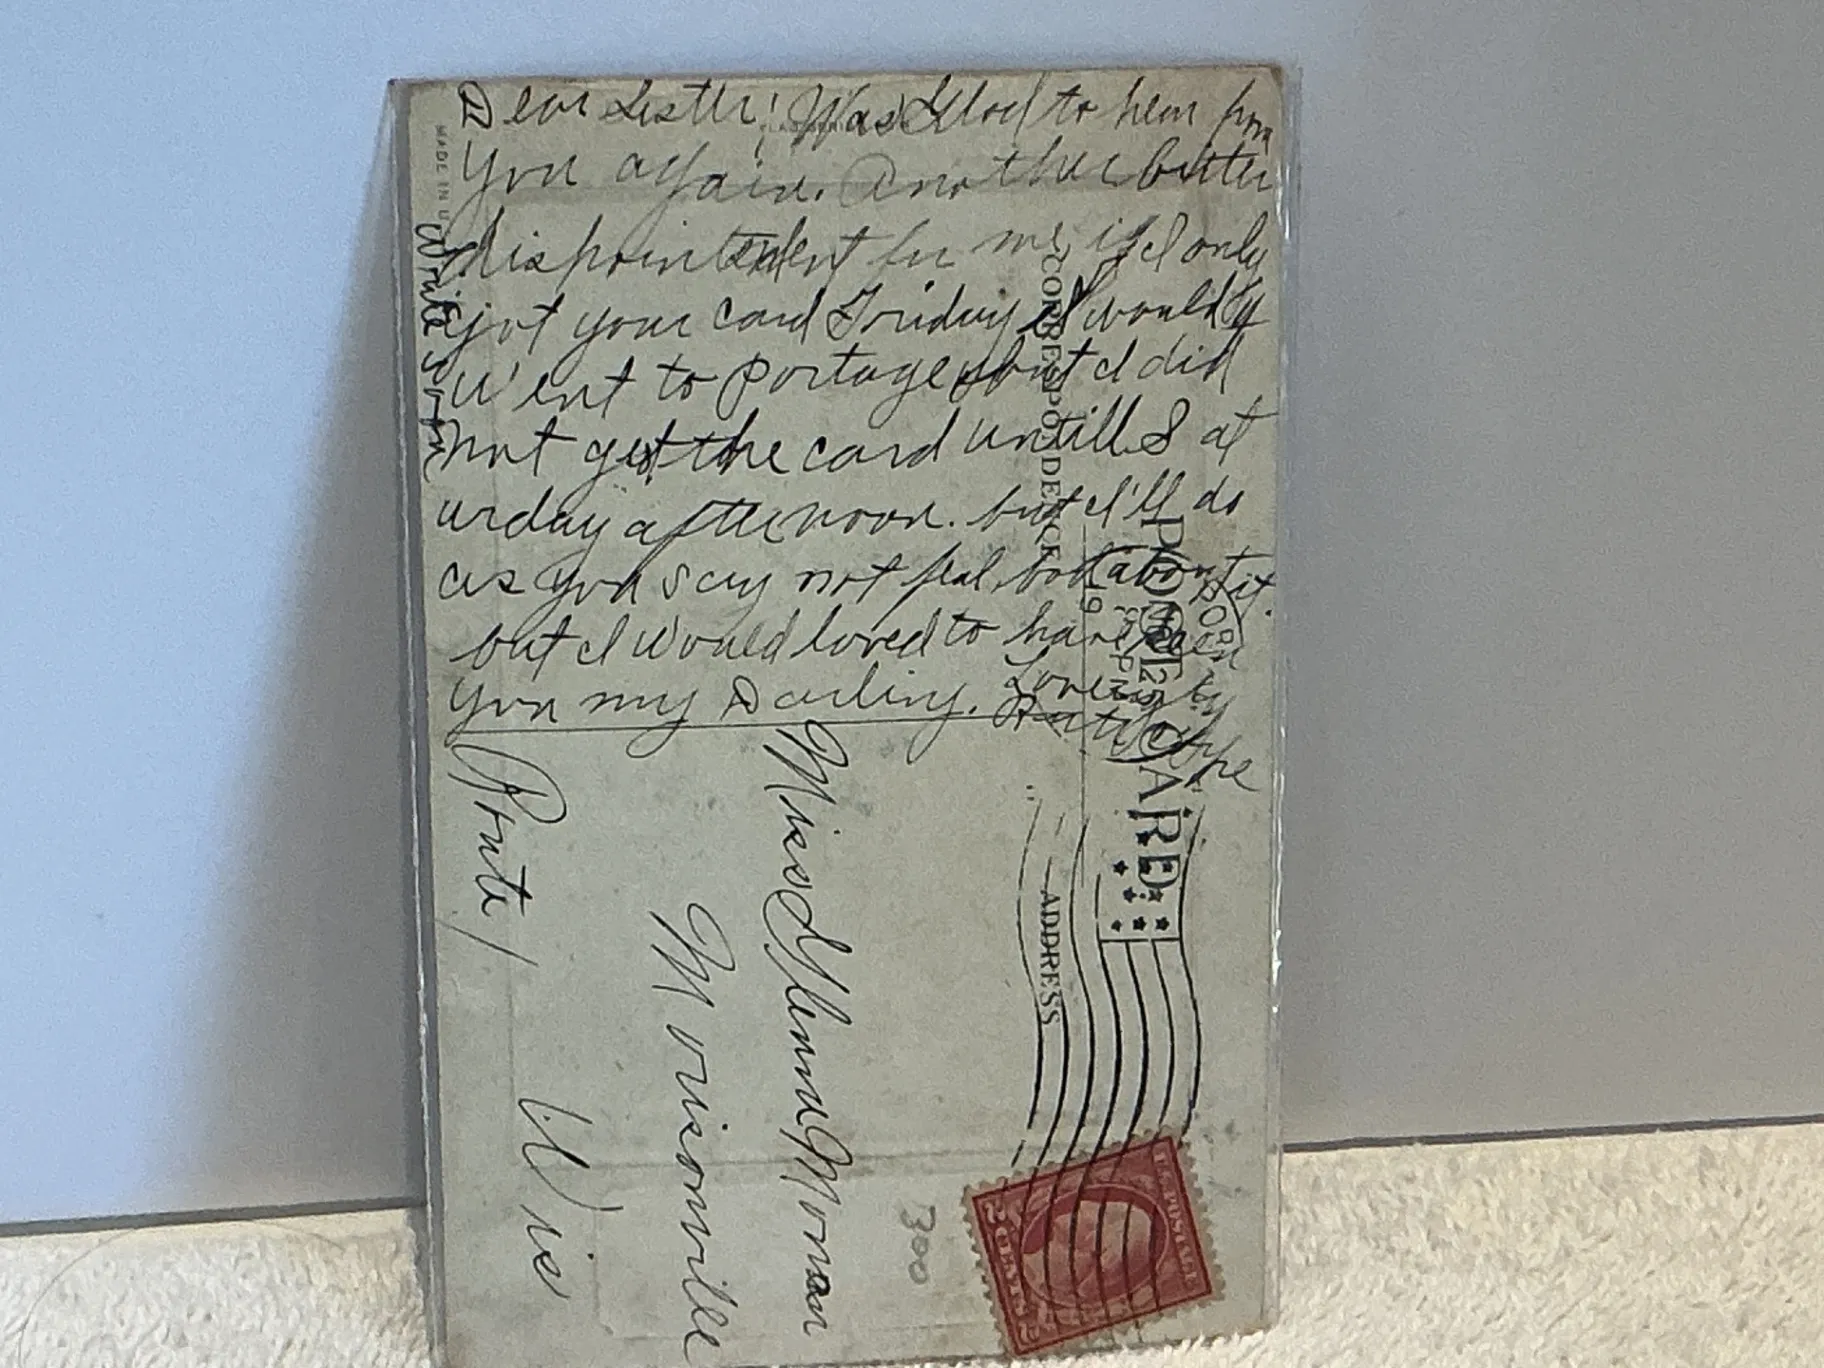 Dear Sister! Was Glad to hear from
you again. Another bitter
dispointment for me, if I only
got your card Friday I would of
went to Portage but I did
not get the card untill Sat
urday afternoon. but I'll do
as you say not feal bad about it.
but I would loved to have seen
you my Darling. Lovingly
Write soon
MADE IN U
CORRESPONDENCE
POST CARD
ADDRESS
Miss Glenna Moran
Morisonville
Route 1 Wis
300
U.S. POSTAGE
2 CENTS 2